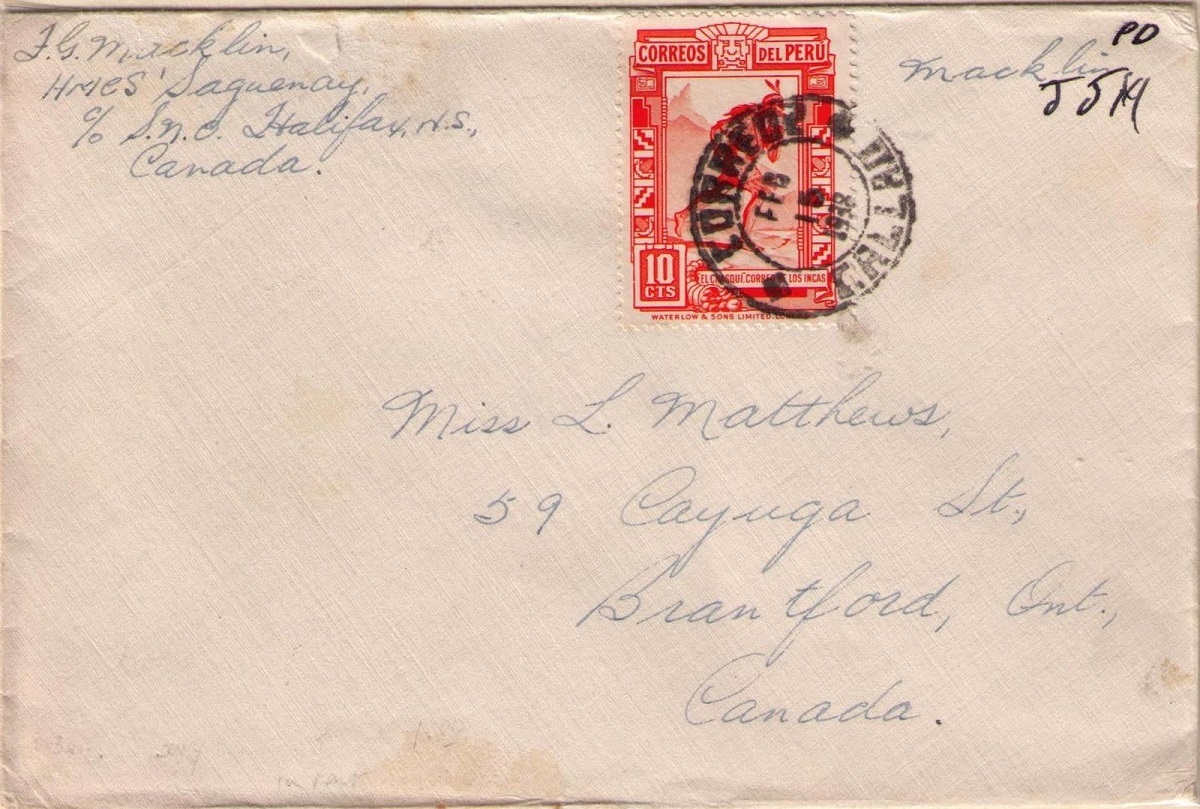 F. G. Macklin,
HMCS' Saguenay,
c/o S.N.O. Halifax, N.S.,
Canada.
CORREOS DEL PERÚ
10
CTS
EL CHASQUI. CORREO DE LOS INCAS
WATERLOW & SONS LIMITED.
CORREOS
CALLAO
FEB
15
1938
Macklin
PD
Miss L. Matthews,
59 Cayuga St.,
Brantford, Ont.,
Canada.